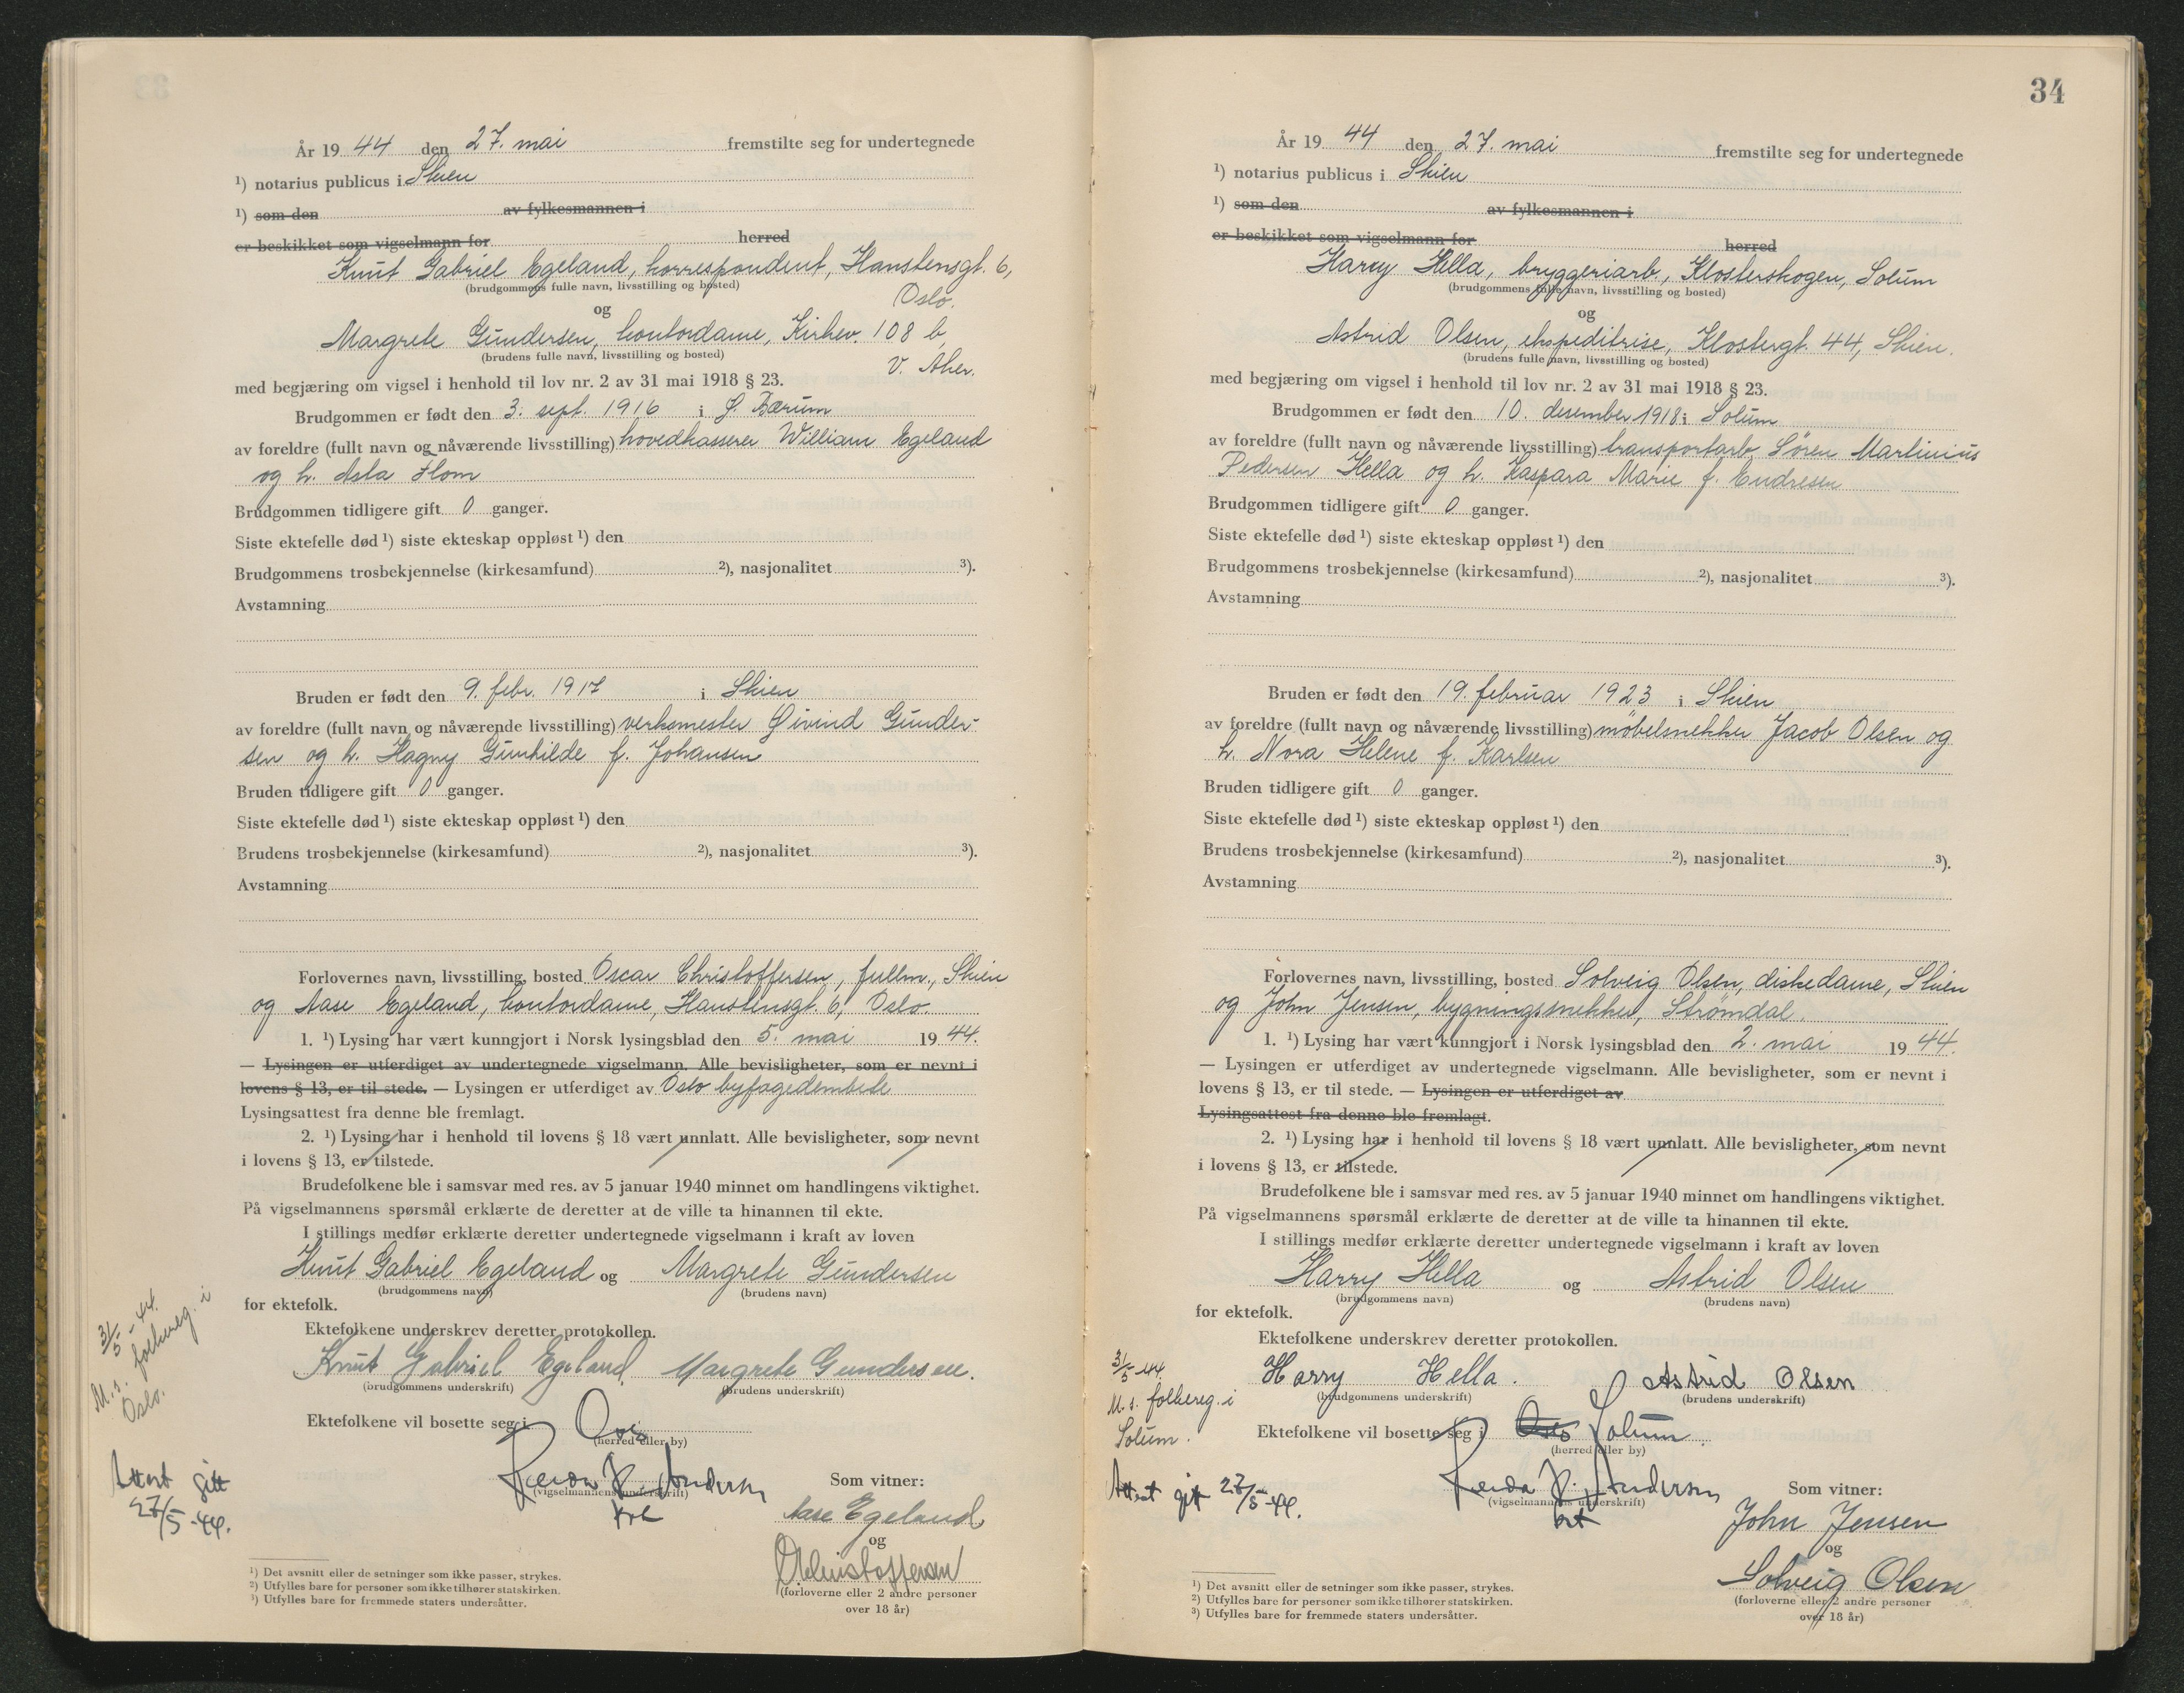 År 19 44 den 27. mai fremstilte seg for undertegnede
¹) notarius publicus i Skien
¹) som den av fylkesmannen i
er beskikket som vigselmann for herred
Knut Gabriel Egeland, korrespondent, Hanstensgt. 6,
(brudgommens fulle navn, livsstilling og bosted)
Oslo.
og
Margrete Gundersen, kontordame, Kirkev. 108 b,
(brudens fulle navn, livsstilling og bosted)
V. Aker.
med begjæring om vigsel i henhold til lov nr. 2 av 31 mai 1918 § 23.
Brudgommen er født den 3. sept. 1916 i Ø. Bærum
av foreldre (fullt navn og nåværende livsstilling) hovedkasserer William Egeland
og h. Asta Flom
Brudgommen tidligere gift 0 ganger.
Siste ektefelle død ¹) siste ekteskap oppløst ¹) den
Brudgommens trosbekjennelse (kirkesamfund) ²), nasjonalitet ³).
Avstamning
Bruden er født den 9. febr. 1917 i Skien
av foreldre (fullt navn og nåværende livsstilling) verksmester Øivind Gunder-
sen og h. Hagny Gunhilde f. Johansen
Bruden tidligere gift 0 ganger.
Siste ektefelle død ¹) siste ekteskap oppløst ¹) den
Brudens trosbekjennelse (kirkesamfund) ²), nasjonalitet ³).
Avstamning
Forlovernes navn, livsstilling, bosted Oscar Christoffersen, fullm., Skien
og Aase Egeland, kontordame, Hanstensgt. 6, Oslo.
1. ¹) Lysing har vært kunngjort i Norsk lysingsblad den 5. mai 19 44.
— Lysingen er utferdiget av undertegnede vigselmann. Alle bevisligheter, som er nevnt i
lovens § 13, er til stede. — Lysingen er utferdiget av Oslo byfogedembede
Lysingsattest fra denne ble fremlagt.
2. ¹) Lysing har i henhold til lovens § 18 vært unnlatt. Alle bevisligheter, som nevnt
i lovens § 13, er tilstede.
Brudefolkene ble i samsvar med res. av 5 januar 1940 minnet om handlingens viktighet.
På vigselmannens spørsmål erklærte de deretter at de ville ta hinannen til ekte.
I stillings medfør erklærte deretter undertegnede vigselmann i kraft av loven
Knut Gabriel Egeland og Margrete Gundersen
(brudgommens navn) (brudens navn)
for ektefolk.
Ektefolkene underskrev deretter protokollen.
Knut Gabriel Egeland. Margrete Gundersen.
(brudgommens underskrift) (brudens underskrift)
31/5 -44.
M. s. folkereg. i
Oslo.
Ektefolkene vil bosette seg i Oslo
(herred eller by)
Attest gitt
27/5 -44.
Andersen
(vigselmannens underskrift)
Som vitner:
Aase Egeland
og
OChristoffersen
(forloverne eller 2 andre personer
over 18 år)
¹) Det avsnitt eller de setninger som ikke passer, strykes.
²) Utfylles bare for personer som ikke tilhører statskirken.
³) Utfylles bare for fremmede staters undersåtter.
34
År 19 44 den 27. mai fremstilte seg for undertegnede
¹) notarius publicus i Skien
¹) som den av fylkesmannen i
er beskikket som vigselmann for herred
Harry Hella, bryggeriarb., Klosterskogen, Solum
(brudgommens fulle navn, livsstilling og bosted)
og
Astrid Olsen, ekspeditrise, Klostergt. 44, Skien.
(brudens fulle navn, livsstilling og bosted)
med begjæring om vigsel i henhold til lov nr. 2 av 31 mai 1918 § 23.
Brudgommen er født den 10. desember 1918 i Solum
av foreldre (fullt navn og nåværende livsstilling) transportarb. Søren Martinius
Pedersen Hella og h. Kaspara Marie f. Endresen
Brudgommen tidligere gift 0 ganger.
Siste ektefelle død ¹) siste ekteskap oppløst ¹) den
Brudgommens trosbekjennelse (kirkesamfund) ²), nasjonalitet ³).
Avstamning
Bruden er født den 19. februar 1923 i Skien
av foreldre (fullt navn og nåværende livsstilling) møbelsnekker Jacob Olsen og
h. Nora Helene f. Karlsen
Bruden tidligere gift 0 ganger.
Siste ektefelle død ¹) siste ekteskap oppløst ¹) den
Brudens trosbekjennelse (kirkesamfund) ²), nasjonalitet ³).
Avstamning
Forlovernes navn, livsstilling, bosted Solveig Olsen, diskedame, Skien
og John Jensen, bygningssnekker, Strømdal.
1. ¹) Lysing har vært kunngjort i Norsk lysingsblad den 2. mai 19 44.
— Lysingen er utferdiget av undertegnede vigselmann. Alle bevisligheter, som er nevnt i
lovens § 13, er til stede. — Lysingen er utferdiget av
Lysingsattest fra denne ble fremlagt.
2. ¹) Lysing har i henhold til lovens § 18 vært unnlatt. Alle bevisligheter, som nevnt
i lovens § 13, er tilstede.
Brudefolkene ble i samsvar med res. av 5 januar 1940 minnet om handlingens viktighet.
På vigselmannens spørsmål erklærte de deretter at de ville ta hinannen til ekte.
I stillings medfør erklærte deretter undertegnede vigselmann i kraft av loven
Harry Hella og Astrid Olsen
(brudgommens navn) (brudens navn)
for ektefolk.
Ektefolkene underskrev deretter protokollen.
Harry Hella. Astrid Olsen
(brudgommens underskrift) (brudens underskrift)
31/5 -44.
M. s. folkereg. i
Solum.
Ektefolkene vil bosette seg i Oslo Solum.
(herred eller by)
Attest gitt 27/5 -44.
Andersen
(vigselmannens underskrift)
Som vitner:
John Jensen
og
Solveig Olsen
(forloverne eller 2 andre personer
over 18 år)
¹) Det avsnitt eller de setninger som ikke passer, strykes.
²) Utfylles bare for personer som ikke tilhører statskirken.
³) Utfylles bare for fremmede staters undersåtter.